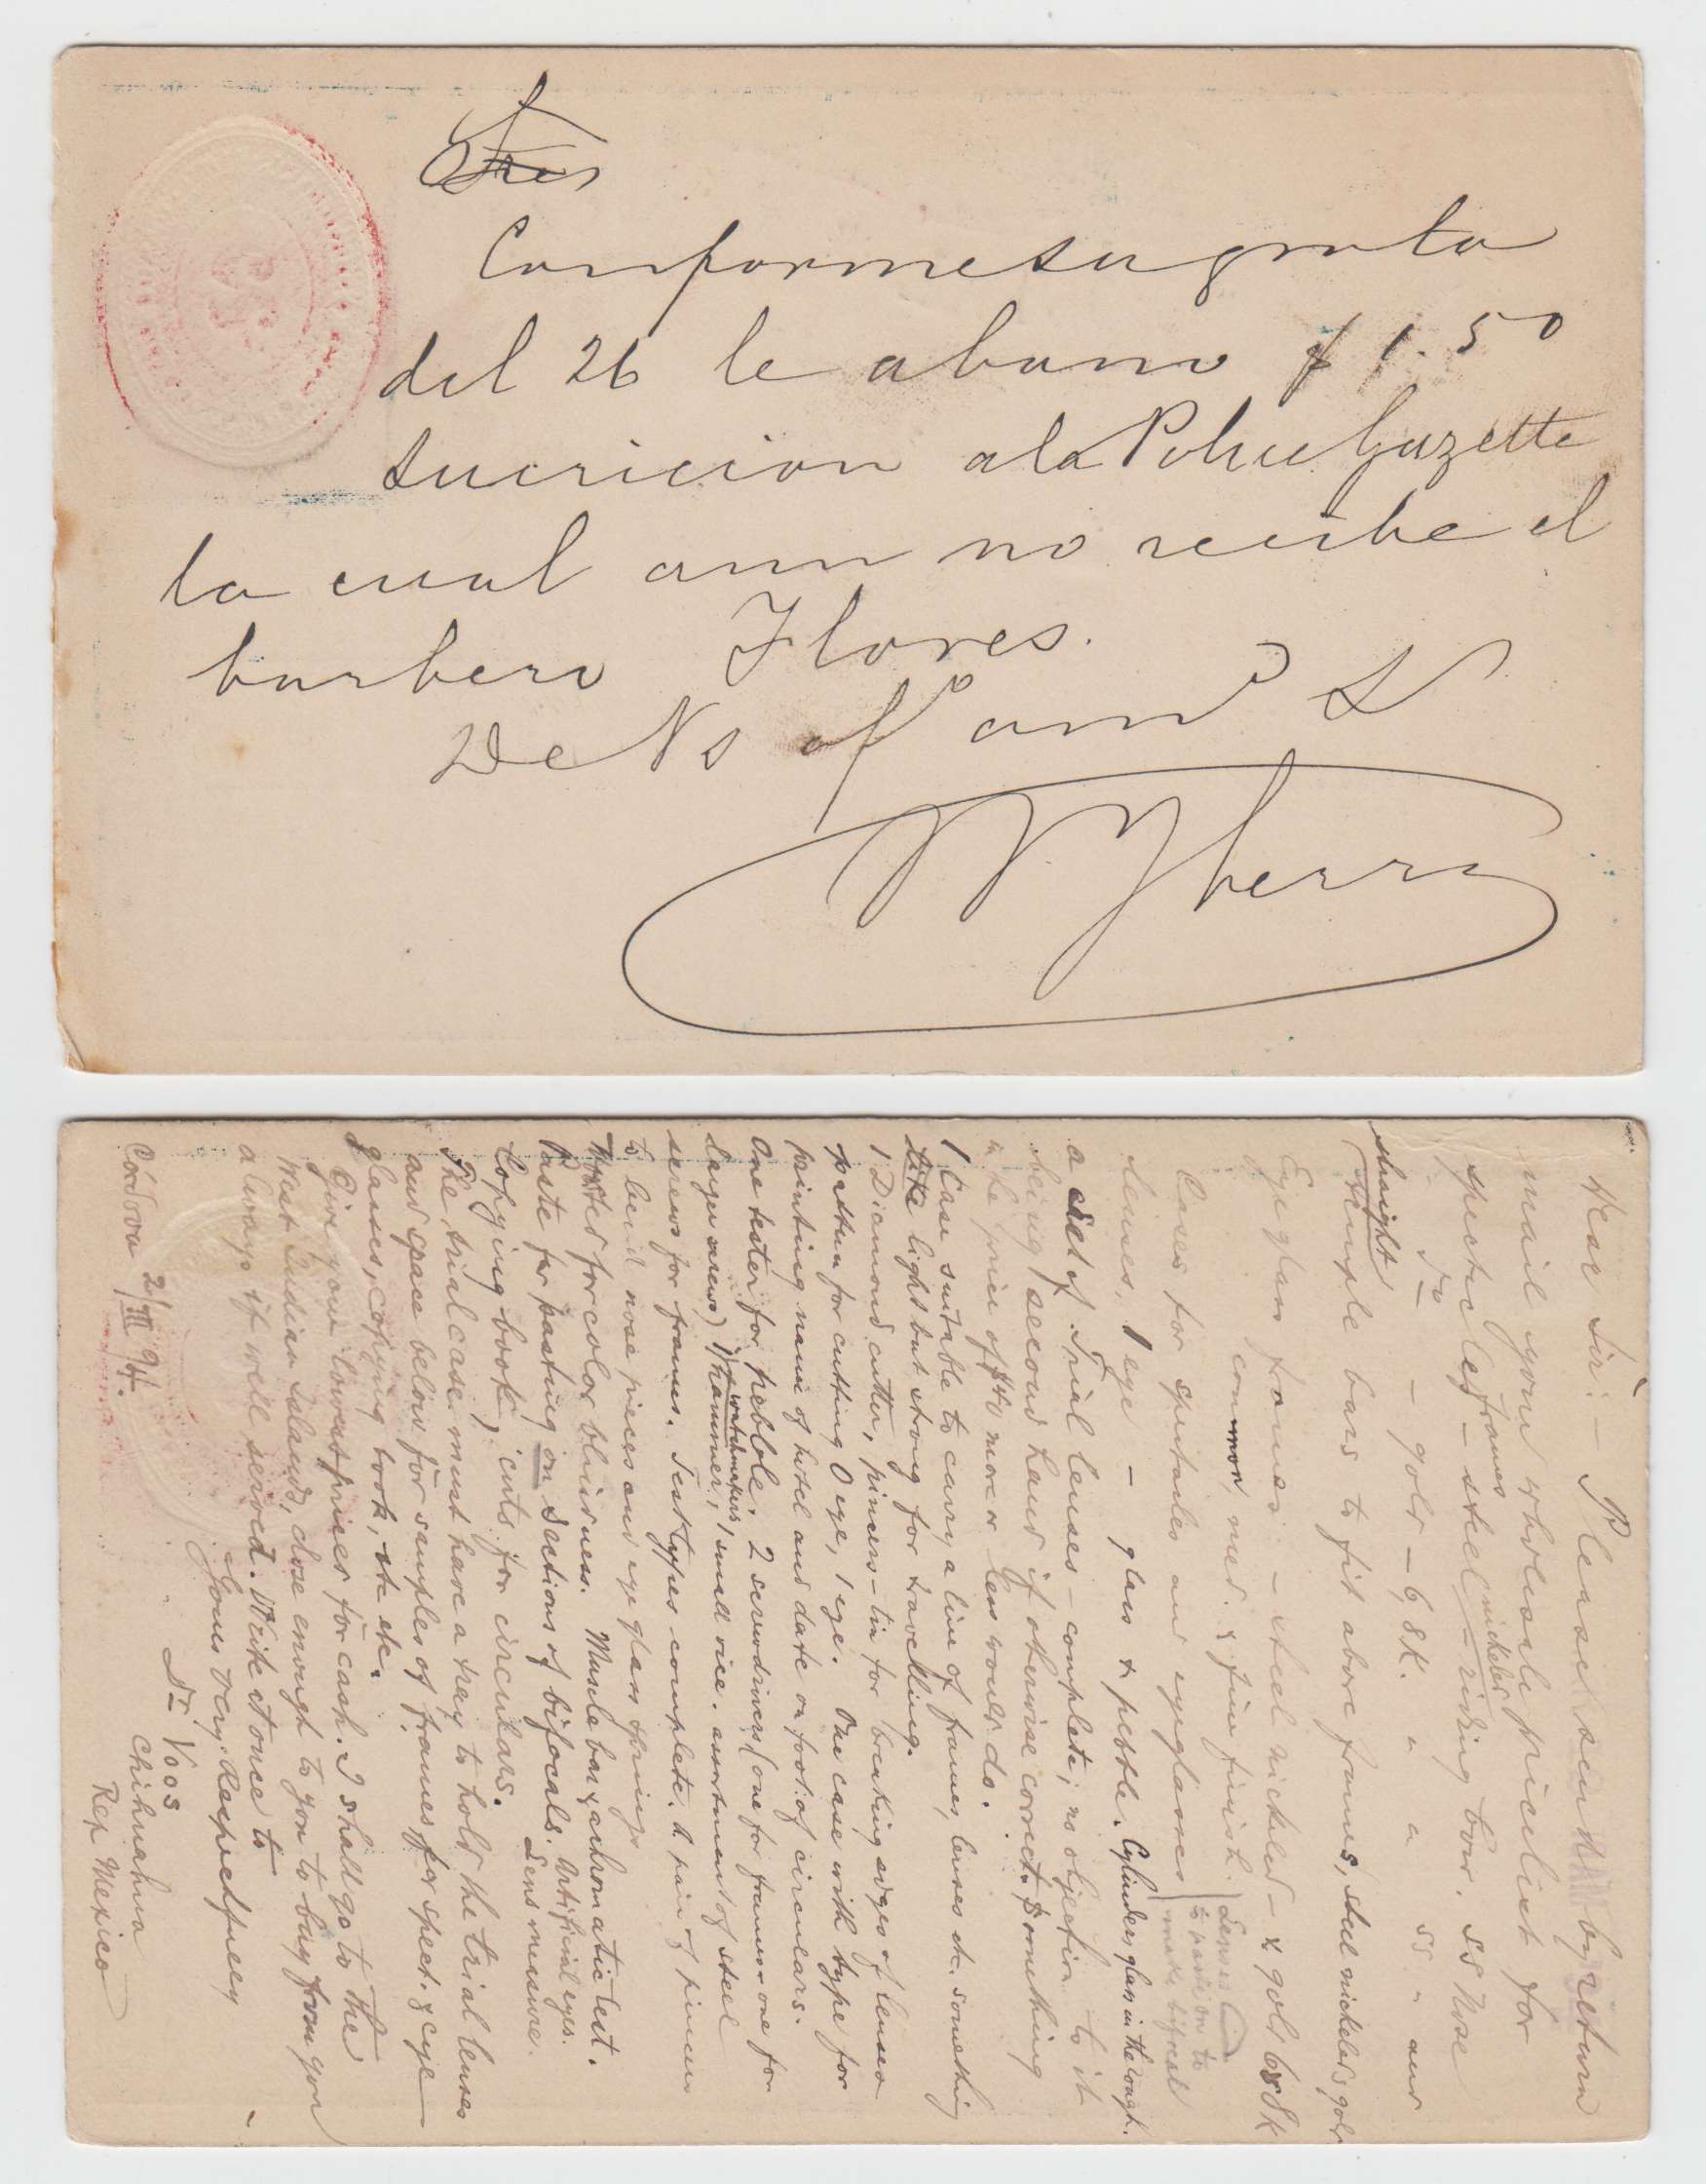 Conforme su grata
del 26 le abono $ 1.50
sucricion a la Police Gazette
la cual aun no recibe el
barbero Flores.
De Vs af amo S
Yberri
Dear Sir: – Please send by return
mail your wholesale pricelist for
spectacles frames – steel nickeled – riding bow. SS Nose
do – gold – 6, 8K. " " SS " and
straight temple bars to fit above frames, steel nickeled & gold
Eye glass frames – steel nickeled – & gold 6 & 8K
common, med. & fine finish.
Cases for spectacles and eyeglasses
Lenses
to
make bifocal
lenses, 1 eye – glass & pebble. Cylinders, glass in the rough.
a Set of Trial lenses – complete; no objection to it
being second hand if otherwise correct. Something
in the price of $40 more or less would do.
1 Case suitable to carry a line of frames, lenses etc. something
like light but strong for travelling.
1 Diamond cutter, pincers – tin for breaking edges of lenses
pattern for cutting 0 eye, 1 eye. One case with type for
printing name of hotel and date on foot of circulars.
One tester for pebble. 2 screwdrivers (one for frames one for
larger screws) 1 watchmakers hammer, 1 small vice. assortment of steel
screws for frames. Test types complete. 2 pair of pincers
to bend nose pieces and eye glass springs
Worsted for color blindness. Muscle bar & achromatic test.
Paste for pasting on sections of bifocals. Artificial eyes.
Copying book, cuts for circulars. Lens measure.
The trial case must have a tray to hold the trial lenses
and space below for samples of frames for spect. & eye
glasses, copying book, etc etc.
Give your lowest prices for cash. I shall go to the
West Indian Islands, close enough to you to buy from you
always if well served. Write at once to
Yours very Respectfully
Dr Voos
Chihuahua
Rep Mexico
Córdova 2/III 94.